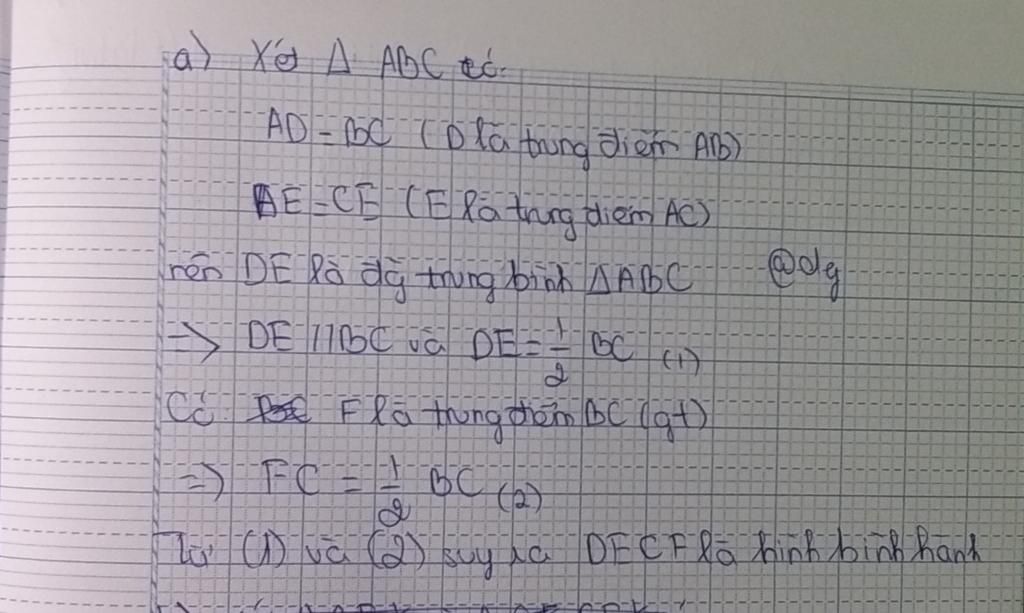 a) Xét Δ ABC có:
AD = BC (D là trung điểm AB)
AE = CE (E là trung điểm AC)
nên DE là đg trung bình ΔABC @dg
=> DE // BC và DE = 1/2 BC (1)
Có F là trung điểm BC (gt)
=> FC = 1/2 BC (2)
Từ (1) và (2) suy ra DECF là hình bình hành